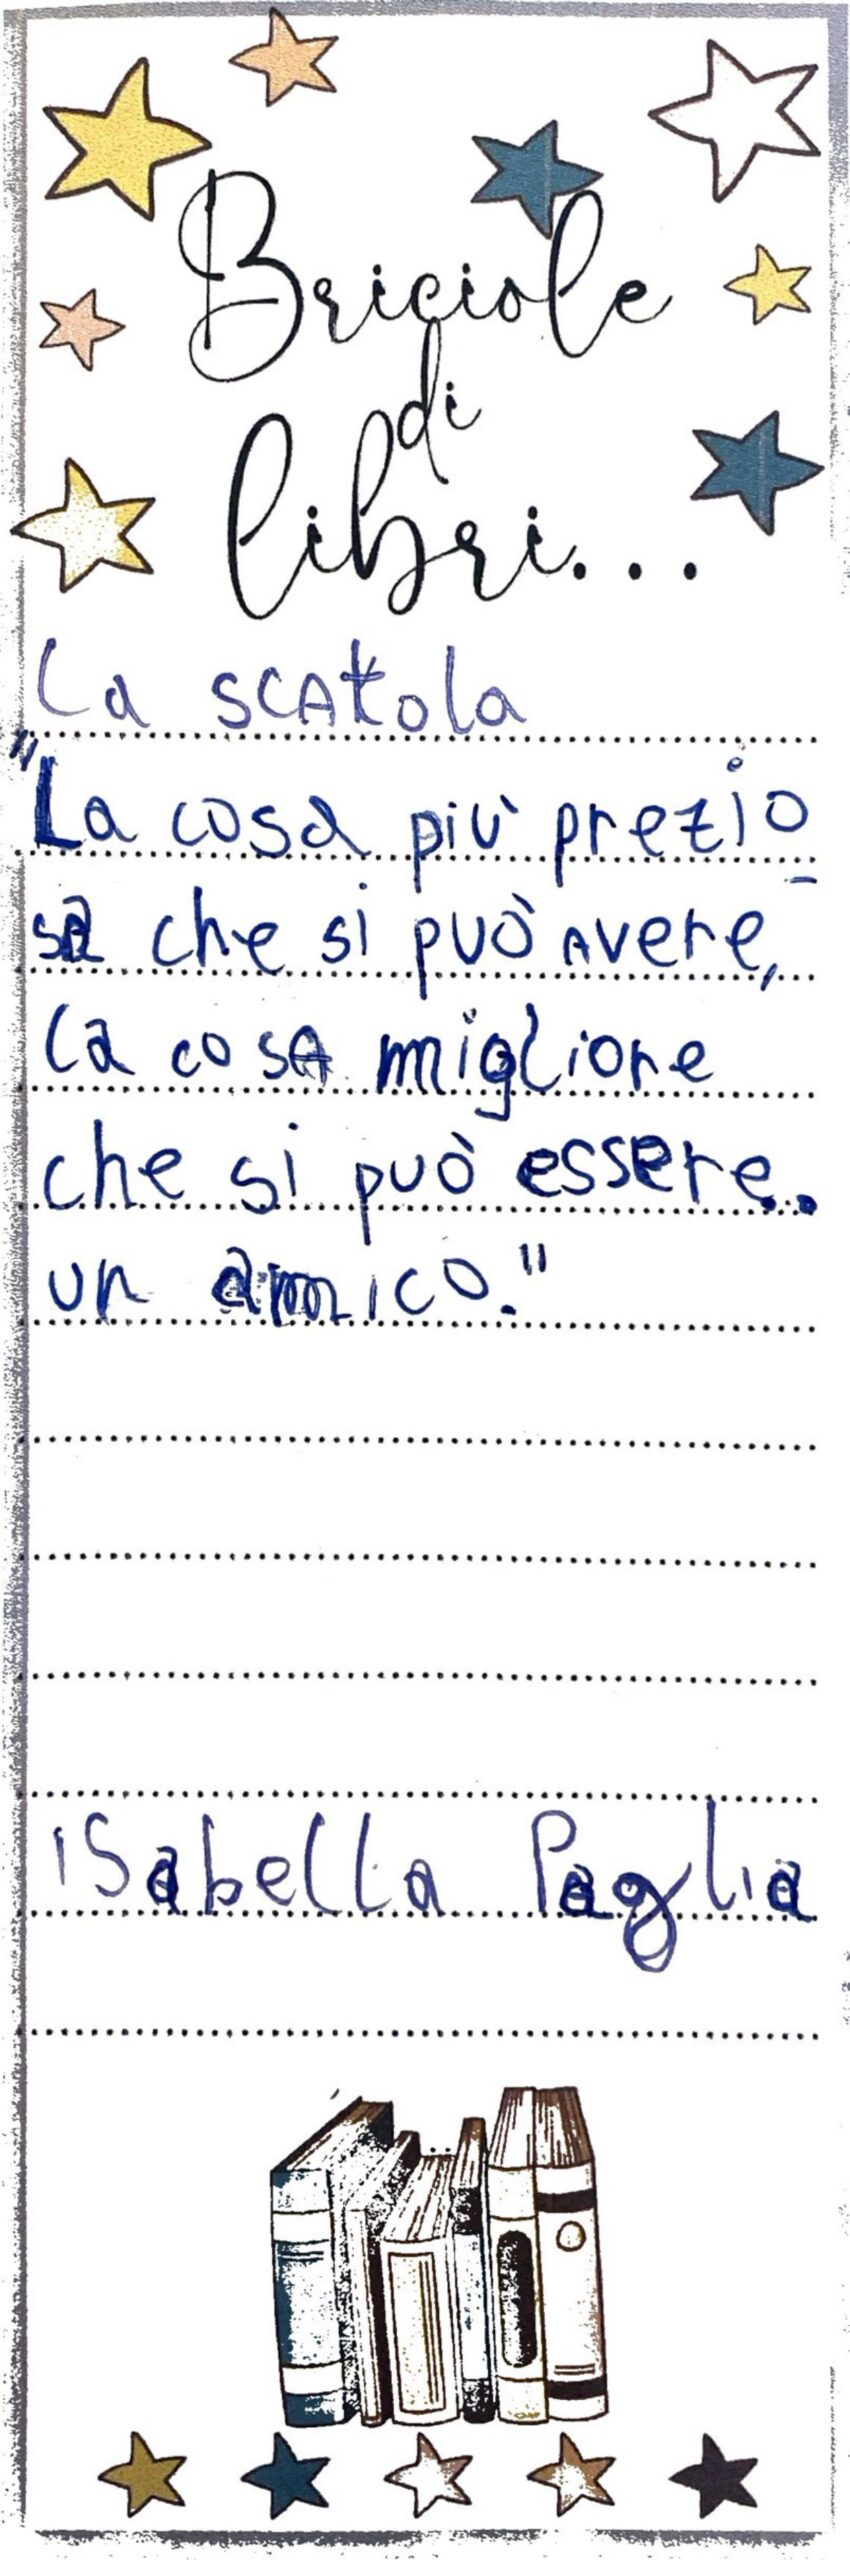 Briciole
di
libri...
La scatola
"La cosa più prezio
sa che si può avere,
la cosa migliore
che si può essere..
un amico."
Isabella Paglia